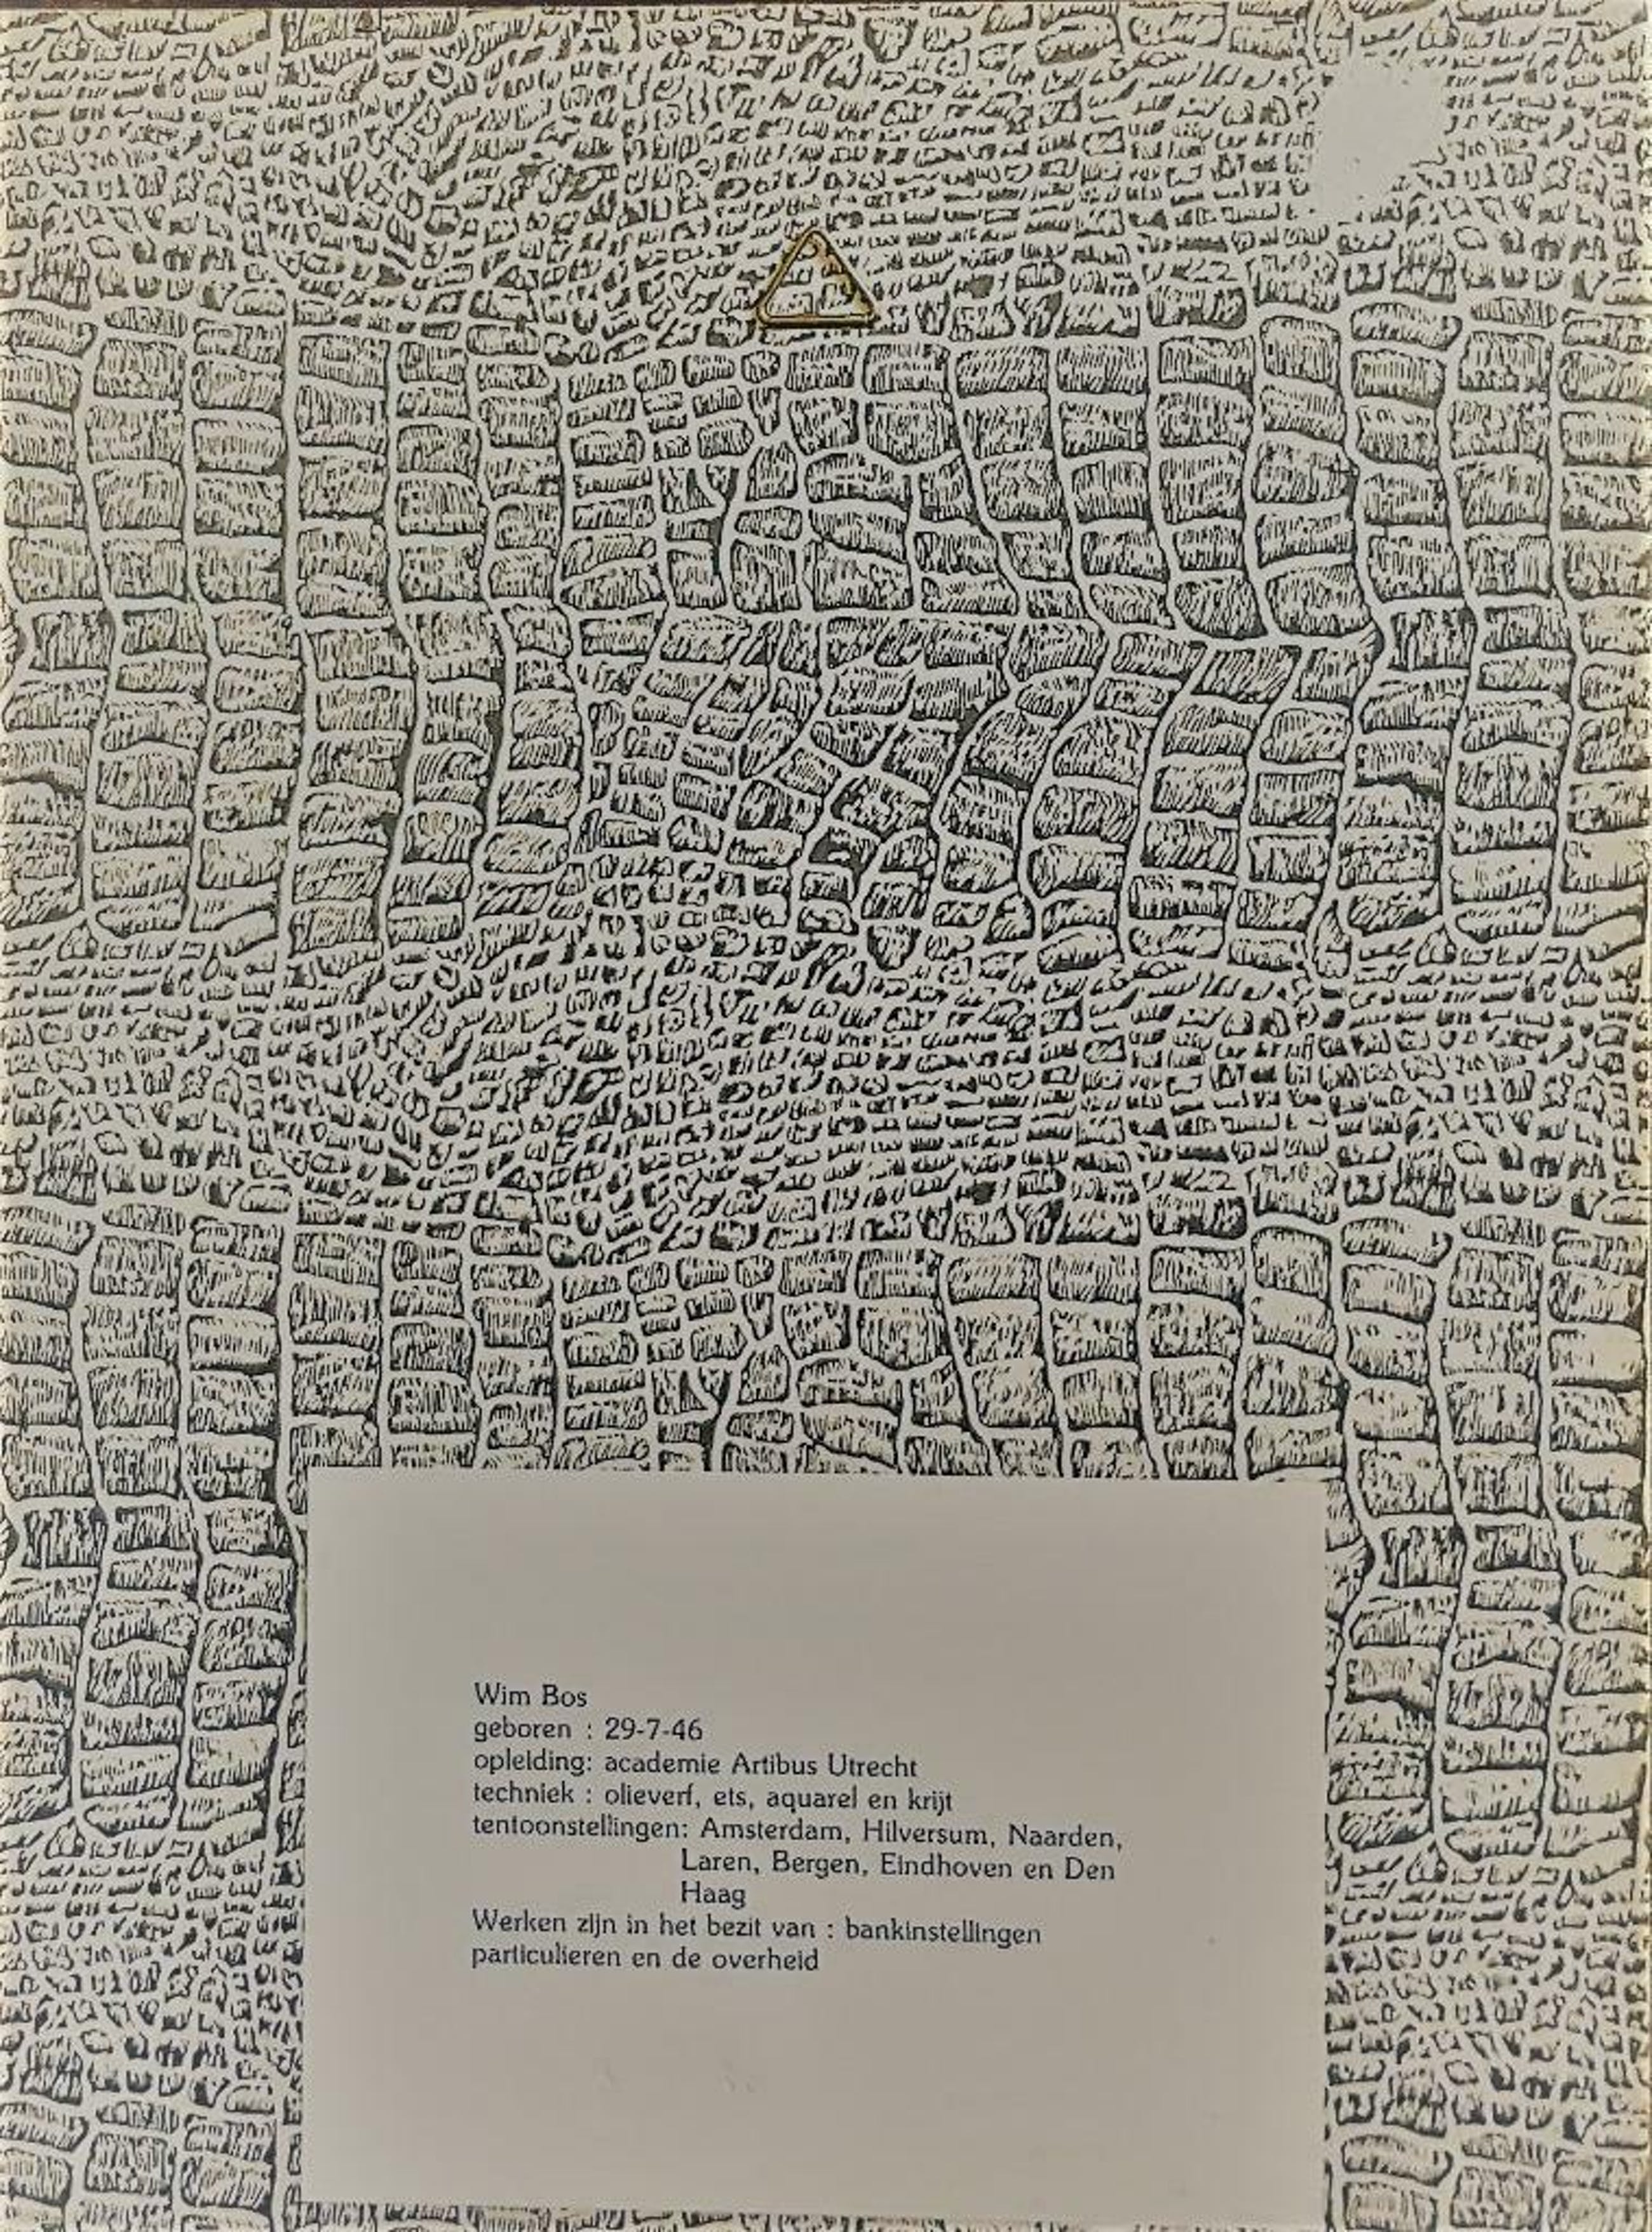 Wim Bos
geboren : 29-7-46
opleiding: academie Artibus Utrecht
techniek : olieverf, ets, aquarel en krijt
tentoonstellingen: Amsterdam, Hilversum, Naarden,
Laren, Bergen, Eindhoven en Den
Haag
Werken zijn in het bezit van : bankinstellingen
particulieren en de overheid